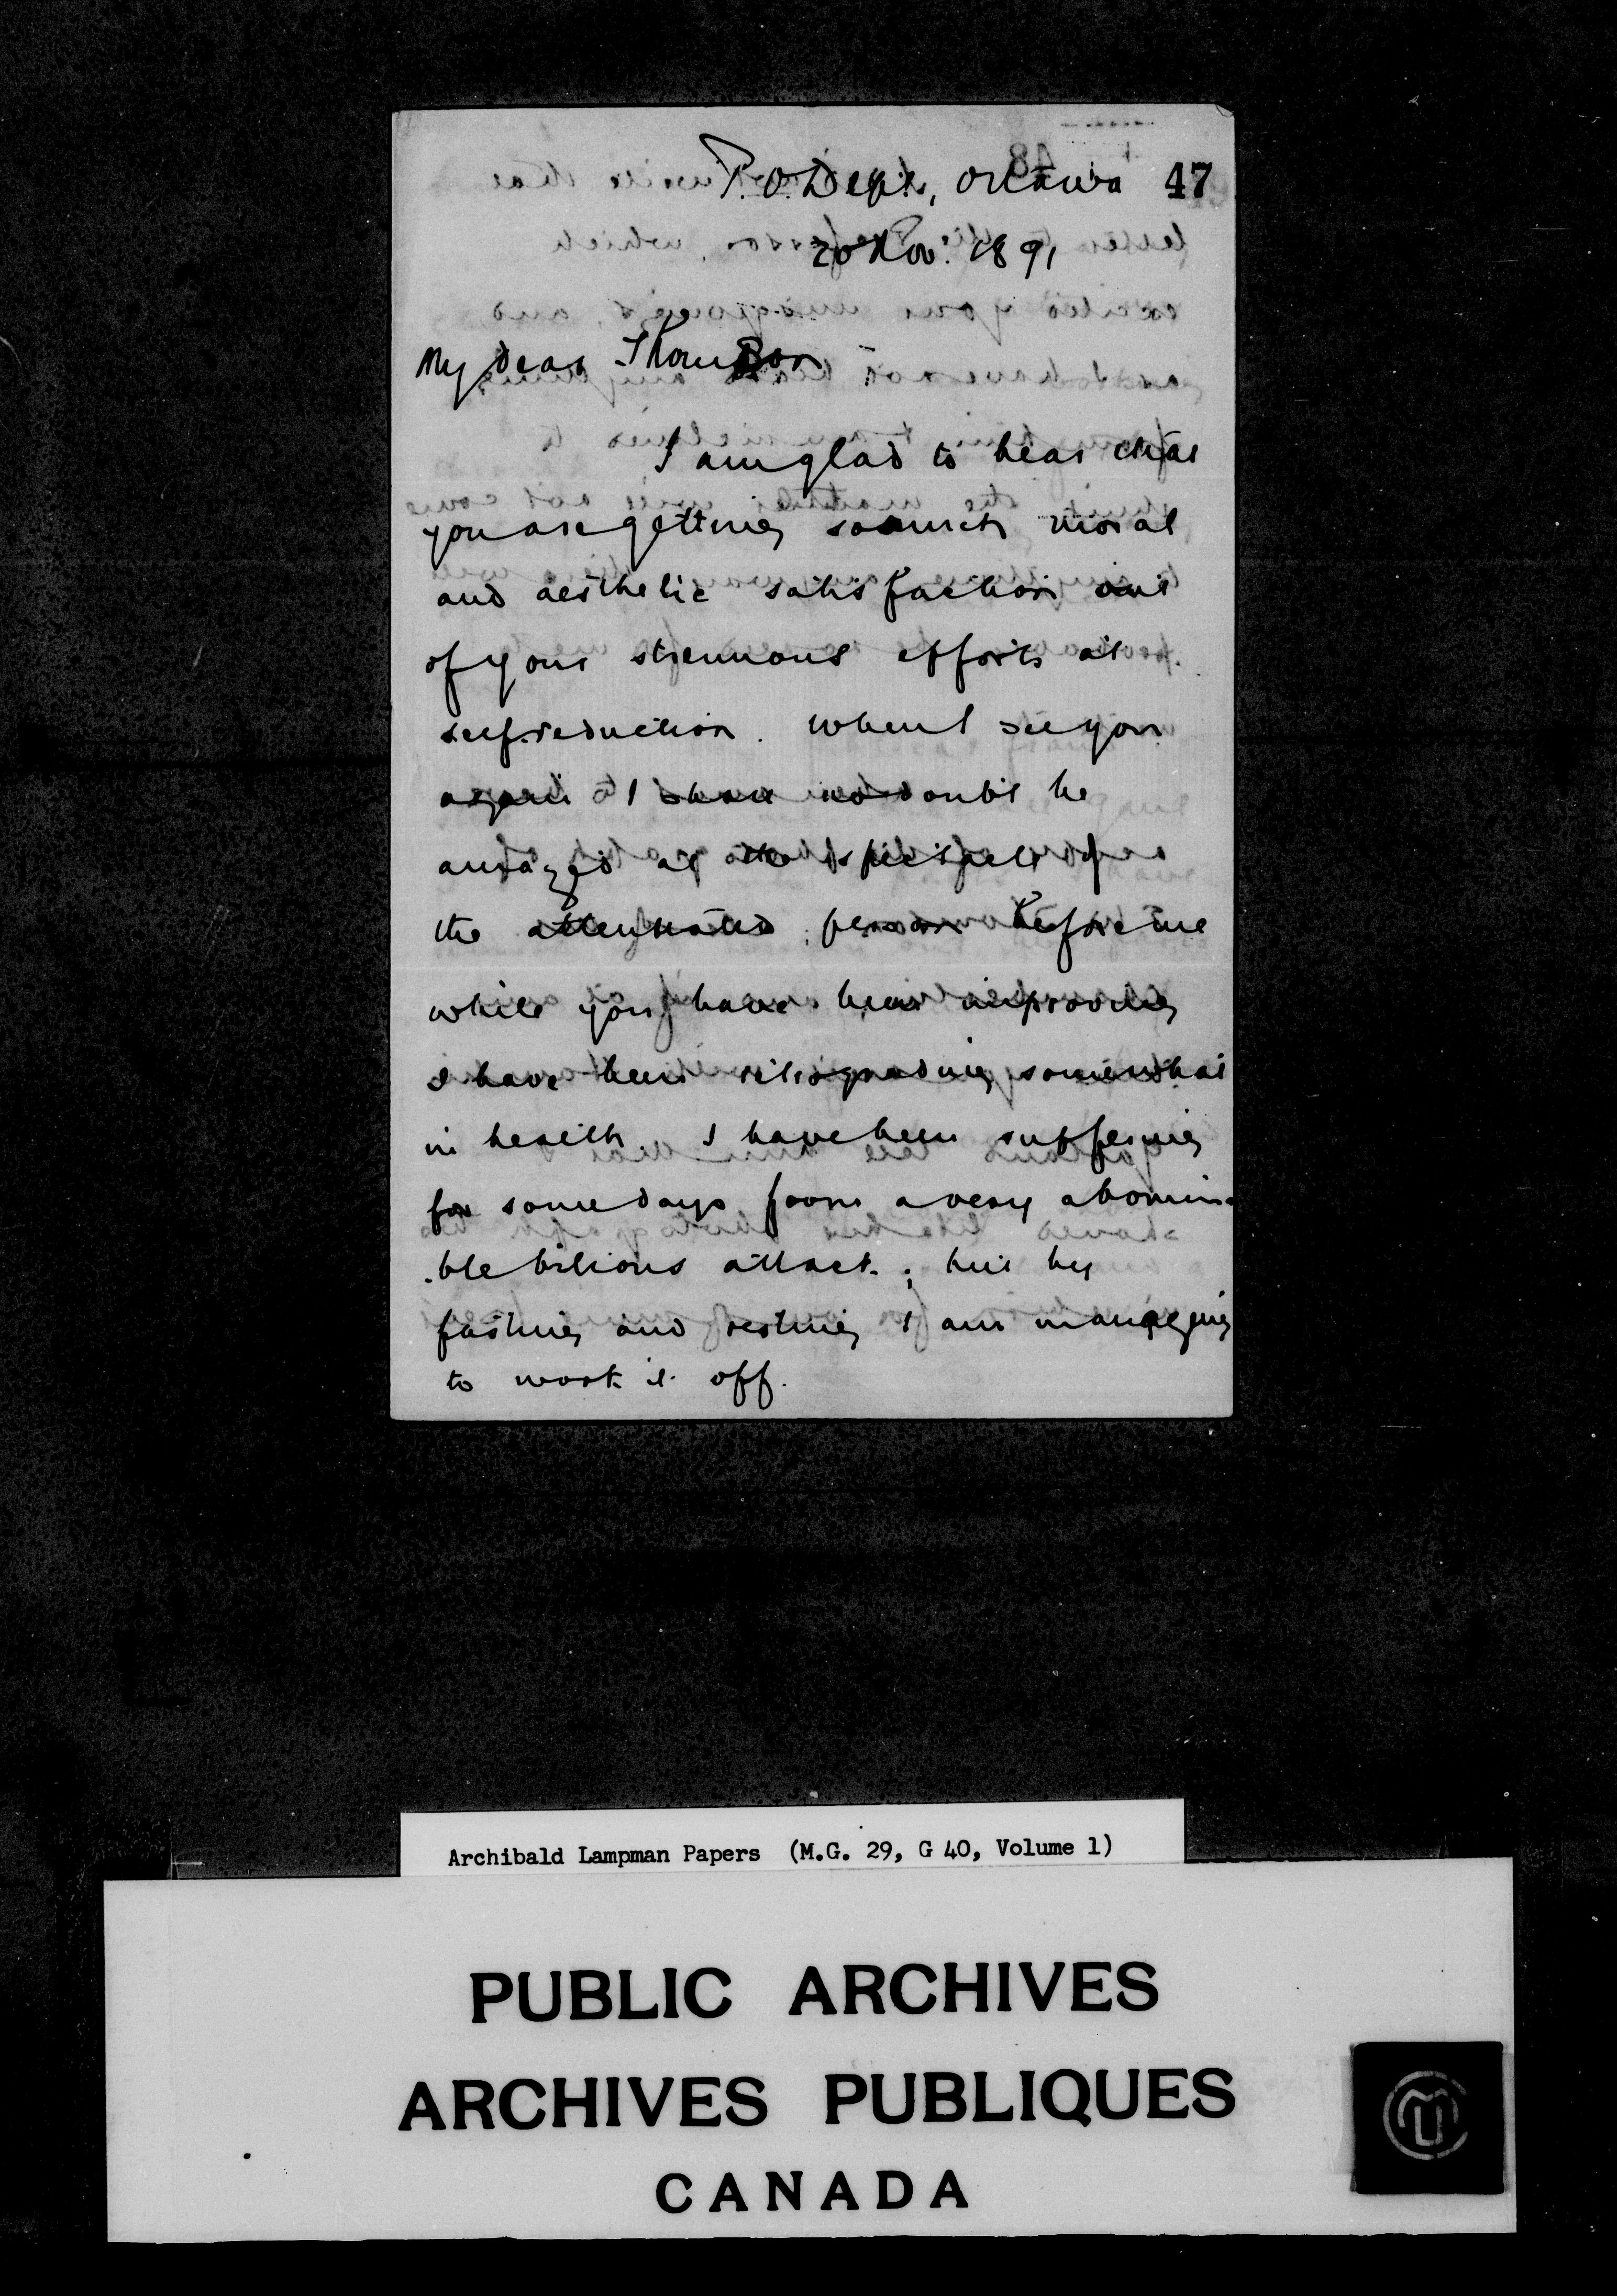 P. O. Dept., Ottawa 47
20 Nov. 1891
My dear Thomson —
I am glad to hear that
you are getting so much moral
and aesthetic satisfaction out
of your strenuous efforts at
self-reduction. When I see you
again I shall no doubt be
amazed at the spectacle of
the attenuated person before me
while you have been improving
I have been retrograding somewhat
in health. I have been suffering
for some days from a very abomina-
ble bilious attack; but by
fasting and resting I am managing
to work it off.
Archibald Lampman Papers (M.G. 29, G 40, Volume 1)
PUBLIC ARCHIVES
ARCHIVES PUBLIQUES
CANADA